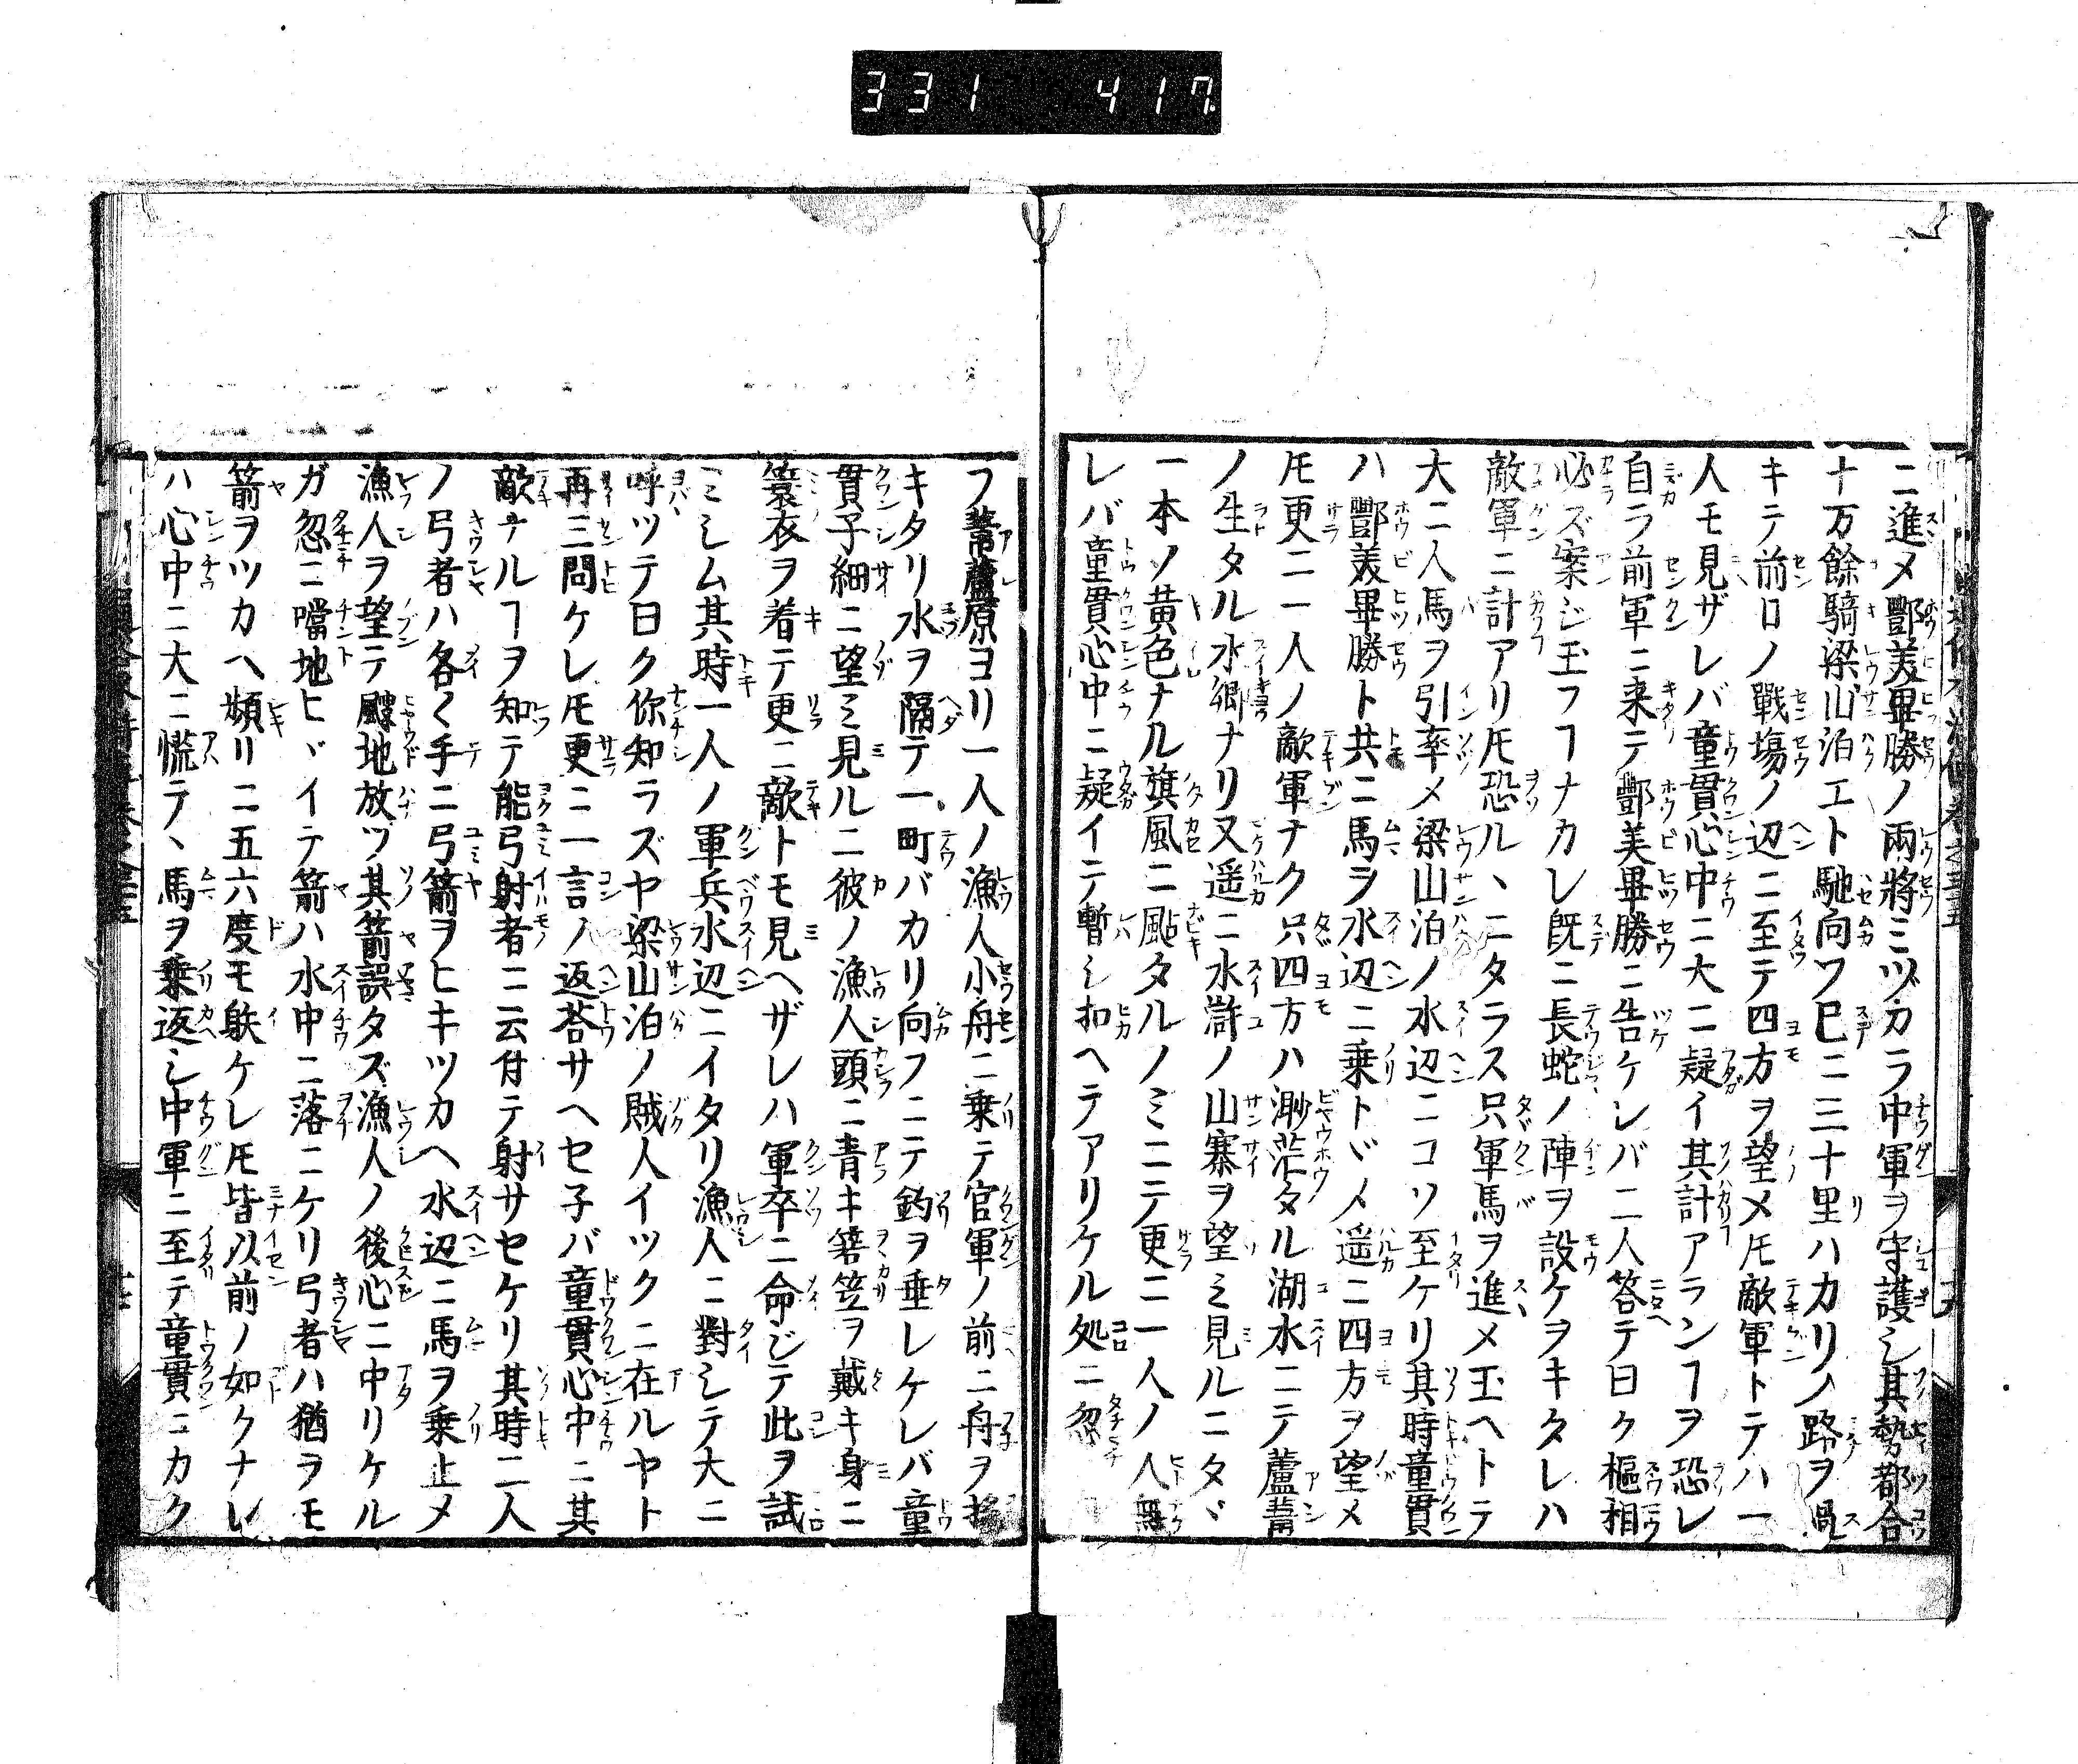 331 417
ニ進メ酆美畢勝ノ兩將ミヅカラ中軍ヲ守護シ其勢都合
十万餘騎梁山泊エト馳向フ已ニ三十里ハカリノ路ヲ過
キテ前ロノ戰塲ノ辺ニ至テ四方ヲ望メ𪜈敵軍トテハ一
人モ見ザレバ童貫心中ニ大ニ疑イ其計アランヿヲ恐レ
自ラ前軍ニ来テ酆美畢勝ニ告ケレバ二人答テ曰ク樞相
必ズ案ジ玉フヿナカレ既ニ長蛇ノ陣ヲ設ケヲキタレハ
敵軍ニ計アリ𪜈恐ルヽニタラス只軍馬ヲ進メ玉ヘトテ
大ニ人馬ヲ引率メ梁山泊ノ水辺ニコソ至ケリ其時童貫
ハ酆美畢勝ト共ニ馬ヲ水辺ニ乗トヾメ遥ニ四方ヲ望メ
𪜈更ニ一人ノ敵軍ナク只四方ハ渺茫タル湖水ニテ蘆葦
ノ生タル水郷ナリ又遥ニ水滸ノ山寨ヲ望ミ見ルニタヾ
一本ソ黄色ナル旗風ニ颭タルノミニテ更ニ一人ノ人無
レバ童貫心中ニ疑イテ暫シ扣ヘテアリケル処ニ忽
フ葦蘆原ヨリ一人ノ漁人小舟ニ乗テ官軍ノ前ニ舟ヲ
キタリ水ヲ隔テ一町バカリ向フニテ釣ヲ垂レケレバ童
貫子細ニ望ミ見ルニ彼ノ漁人頭ニ青キ篛笠ヲ戴キ身ニ
簑衣ヲ着テ更ニ敵トモ見ヘザレハ軍卒ニ命ジテ此ヲ試
ミシム其時一人ノ軍兵水辺ニイタリ漁人ニ對シテ大ニ
呼ツテ曰ク你知ラズヤ梁山泊ノ賊人イツクニ在ルヤト
再三問ケレ𪜈更ニ一言ノ返荅サヘセ子バ童貫心中ニ其
敵ナルヿヲ知テ能弓射者ニ云付テ射サセケリ其時二人
ノ弓者ハ各〱手ニ弓箭ヲヒキツカヘ水辺ニ馬ヲ乗止メ
漁人ヲ望テ颼地放ツ其箭誤タズ漁人ノ後心ニ中リケル
ガ忽ニ噹地ヒヾイテ箭ハ水中ニ落ニケリ弓者ハ猶ヲモ
箭ヲツカヘ頻リニ五六度モ躾ケレ𪜈皆以前ノ如クナレ
ハ心中ニ大ニ慌テヽ馬ヲ乗返シ中軍ニ至テ童貫ニカク